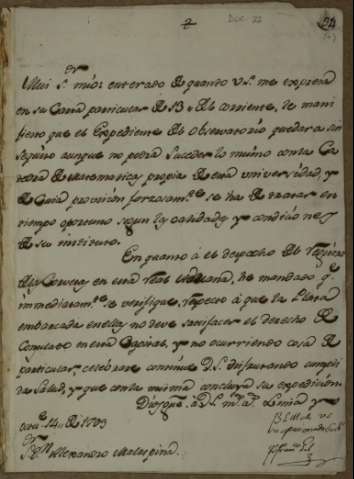 2 DOC 22
Mui S.r mio: enterado de quanto VS. me expresa
en su Carta particular de 13 del corriente, le mani
fiesto que el Expediente del Observatorio quedará sin
seguirse aunque no podrá suceder lo mismo con la Ca
tedra de Matematica propia de esta Universidad, y
de Cuia provision forzosam.te se ha de tratar en
tiempo oportuno segun la calidad, y condiciones
de su instituto.
En quanto á el despacho del Registro
de la Corveta en esta Real Aduana, he mandado q.e
immediatam.te se verifique, respecto á que la Plata
embarcada en ella no debe satisfacer el derecho de
Consulado en esta Capital, y no ocurriendo cosa
particular, celebrare continue VS. disfrutando cumpli
da Salud, y que con la misma concluya su expedicion.
Dios gu.e á VS. m.s a.s Lima y
14 de 1793
B. L. M. de VS.
S.or D.n Alexandro Malaspina.